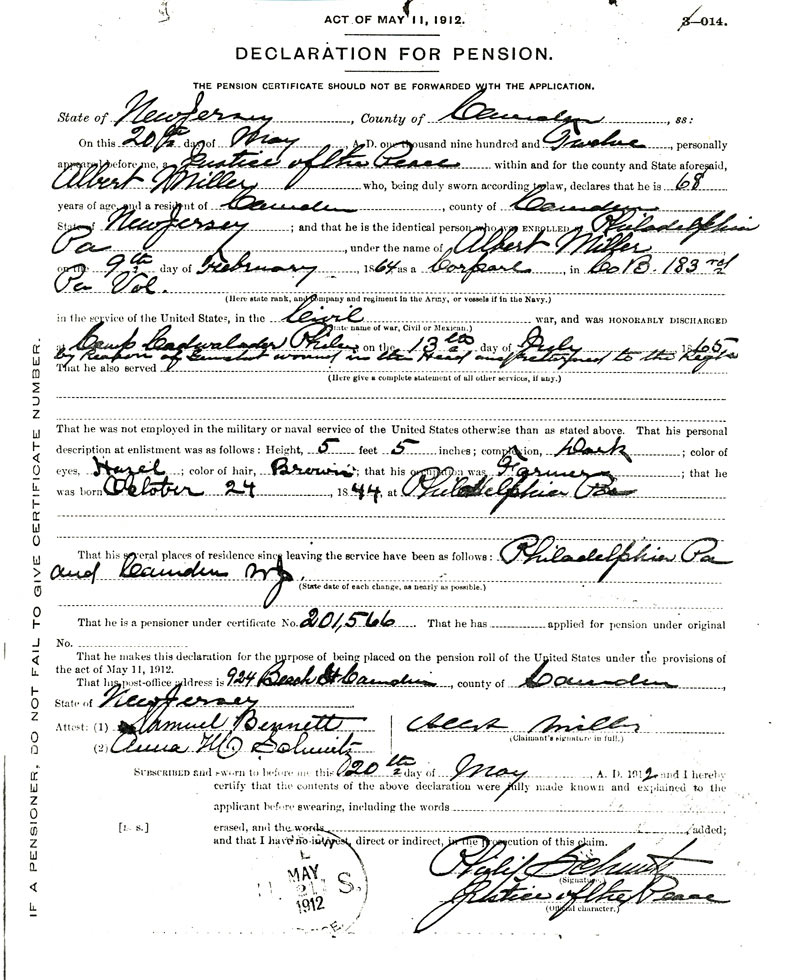 ACT OF MAY 11, 1912.
3—014.
DECLARATION FOR PENSION.
THE PENSION CERTIFICATE SHOULD NOT BE FORWARDED WITH THE APPLICATION.
State of New Jersey, County of Camden, ss:
On this 20th day of May, A. D. one thousand nine hundred and Twelve, personally
appeared before me, a Justice of the Peace within and for the county and State aforesaid,
Albert Miller who, being duly sworn according to law, declares that he is 68
years of age, and a resident of Camden, county of Camden
State of New Jersey; and that he is the identical person who was ENROLLED at Philadelphia
Pa, under the name of Albert Miller
on the 9th day of February, 1864 as a Corporl, in Co B. 183rd
Pa Vol.
(Here state rank, and company and regiment in the Army, or vessels if in the Navy.)
in the service of the United States, in the Civil war, and was HONORABLY DISCHARGED
(State name of war, Civil or Mexican.)
at Camp Cadwalader Phila on the 13th day of July 1865
by Reason of Gunshot wound in the Head to the Right
That he also served
(Here give a complete statement of all other services, if any.)
That he was not employed in the military or naval service of the United States otherwise than as stated above. That his personal
description at enlistment was as follows: Height, 5 feet 5 inches; complexion, Dark; color of
eyes, Hazel; color of hair, Brown; that his occupation was Farmer; that he
was born October 24, 1844, at Philadelphia Pa
That his several places of residence since leaving the service have been as follows: Philadelphia Pa
and Camden NJ.
(State date of each change, as nearly as possible.)
That he is a pensioner under certificate No. 201,566 That he has applied for pension under original
No.
That he makes this declaration for the purpose of being placed on the pension roll of the United States under the provisions of
the act of May 11, 1912.
That his post-office address is 924 Beach St Camden, county of Camden,
State of New Jersey
Attest: (1) Samuel Bennett
Albert Miller
(Claimant's signature in full.)
(2) Anna M Schmitz
SUBSCRIBED and sworn to before me this 20th day of May, A. D. 1912, and I hereby
certify that the contents of the above declaration were fully made known and explained to the
applicant before swearing, including the words
[L. S.]
erased, and the words, added;
and that I have no interest, direct or indirect, in the prosecution of this claim.
L
MAY
21
1912
S.
Philip Schmitz
(Signature.)
Justice of the Peace
(Official character.)
IF A PENSIONER, DO NOT FAIL TO GIVE CERTIFICATE NUMBER.